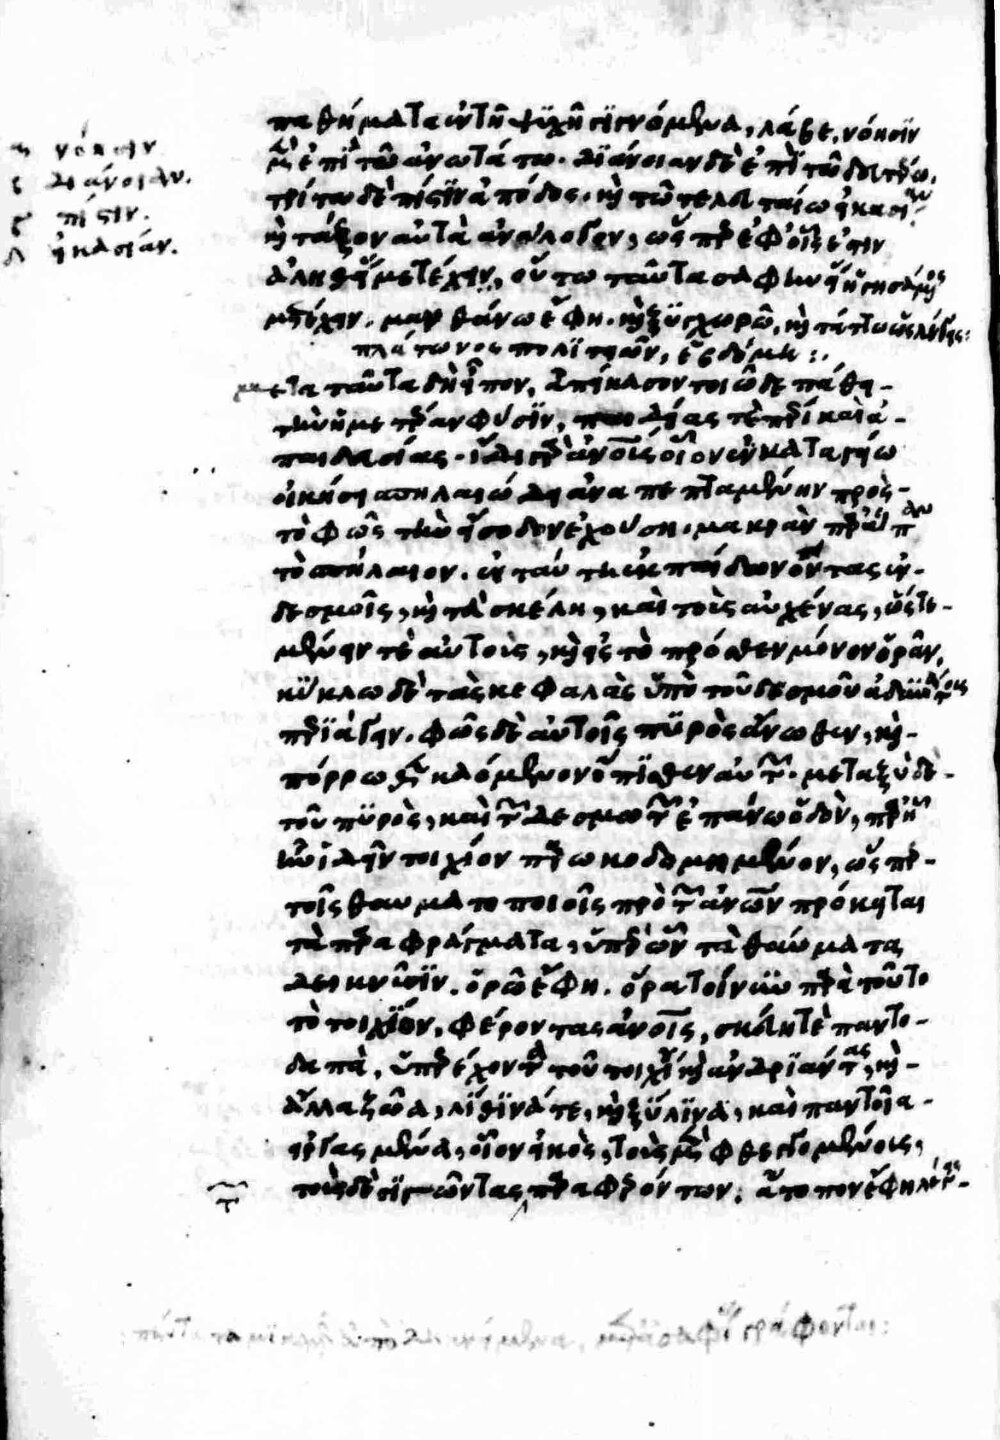 νόησιν
διάνοιαν.
πίστιν.
εἰκασίαν.
παθήματα ἐν τῆ ψυχῆ γιγνόμενα, λάβε, νόησιν
μὲν ἐπὶ τῶ ἀνωτάτω. διάνοιαν δὲ ἐπὶ τῶ δευτέρω.
τρίτω δὲ πίστιν ἀπόδος. καὶ τῶ τελευταίω εἰκασίαν
καὶ τάξον αὐτὰ ἀνάλογον, ὥσπερ ἐφ' οἷς ἐστιν
ἀληθείας μετέχειν, οὕτω ταῦτα σαφηνείας ἡγησάμενος
μετέχειν. μανθάνω ἔφη. καὶ ξυγχωρῶ, καὶ τάττω ὡς λέγεις:
πλάτωνος πολιτειῶν, ἑβδόμη:.
μετα ταῦτα δὴ εἶπον, ἀπείκασον τοιῶδε πάθει
τὴν ἡμετέραν φύσιν, παιδείας τὲ πέρι καὶ ἀ-
παιδευσίας. ἴδε γὰρ ἀνους οἷον ἐν καταγείω
οἰκήσει σπηλαιώδει ἀναπεπταμένην πρὸς
τὸ φῶς τὴν εἴσοδον ἐχούση. μακρὰν παρὰ πᾶν
τὸ σπήλαιον. ἐν ταύτη ἐκ παίδων ὄντας ἐν
δεσμοῖς, καὶ τὰ σκέλη, καὶ τοὺς αὐχένας, ὥστε
μένειν τὲ αὐτοὺς, καὶ εἰς τὸ πρόσθεν μόνον ὁρᾶν,
κύκλω δὲ τὰς κεφαλὰς ὑπὸ τοῦ δεσμοῦ ἀδυνάτους
περιάγειν. φῶς δὲ αὐτοῖς πυρὸς ἄνωθεν, καὶ
πόρρωθεν καόμενον ὄπισθεν αὐτῶν. μεταξὺ δὲ
τοῦ πυρὸς, καὶ τῶν δεσμωτῶν ἐπάνω ὁδὸν, παρ' ἣν
ἰδεῖν τοιχίον παρωκοδομημένον, ὥσπερ
τοῖς θαυματοποιοῖς πρὸ τῶν ἀνων πρόκειται
τὰ παραφράγματα, ὑπὲρ ὧν τὰ θαύματα
δεικνῦσιν. ὁρῶ ἔφη. ὅρα τοίνυν παρὰ τοῦτο
τὸ τοιχίον, φέροντας ἀνους, σκεύη τὲ παντο-
δαπὰ, ὑπερέχοντα τοῦ τοιχίου καὶ ἀνδριάντας, καὶ
ἄλλα ζῶα, λίθινά τε, καὶ ξύλινα, καὶ παντοῖα
εἰργασμένα, οἷον εἰκὸς, τοὺς μὲν φθεγγομένους,
τοὺς δὲ σιγῶντας παραφερόντων. ἄτοπον ἔφη λέγεις